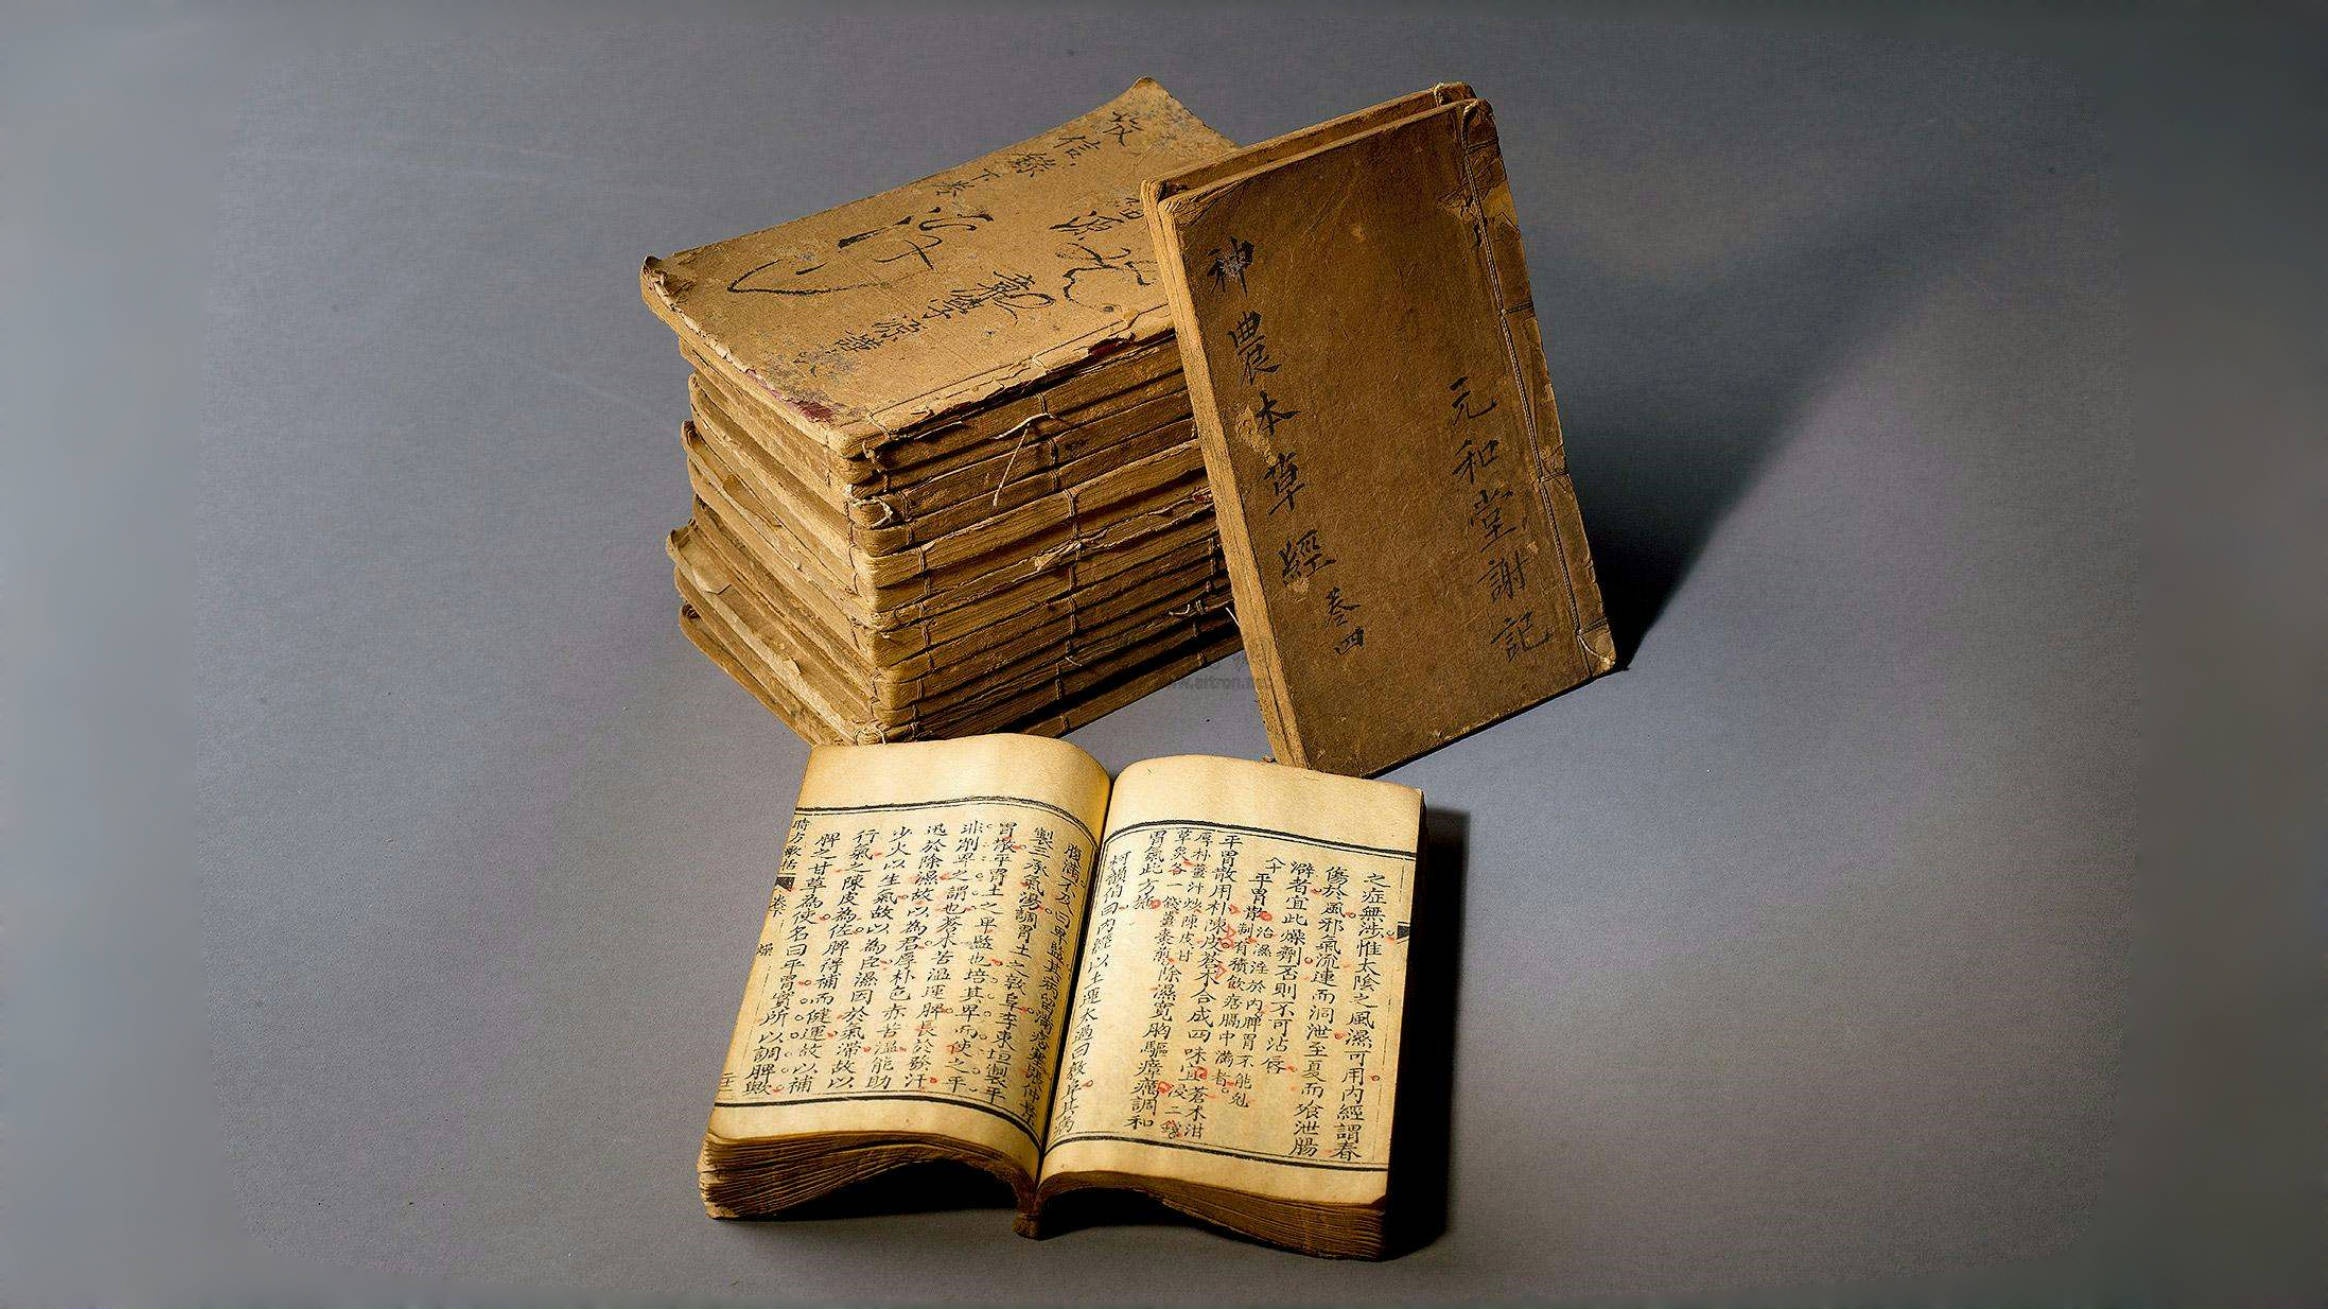 神農本草經 卷四
元和堂謝記
信錄下卷
之症無涉惟太陰之風濕可用內經謂春
傷於風邪氣流連而洞泄至夏而飧泄腸
澼者宜此燥劑否則不可沾唇
平胃散 治濕淫於內脾胃不能剋
制有積飲痞膈中滿者
平胃散用朴陳皮蒼朮合成四味宜 蒼朮泔浸二錢
厚朴薑汁炒陳皮甘
草炙各一錢薑棗煎 除濕寬胸驅瘴癘調和
胃氣此方施
柯韻伯曰內經以土運太過曰敦阜其病
腹滿不及曰卑監其病留滿痞塞
製三承氣湯調胃土之敦阜李東垣製平
胃散平胃土之卑監也培其卑而使之平
非削平之謂也蒼朮苦溫運脾長於發汗
迅於除濕故以為君厚朴色赤苦溫能助
少火以生氣故以為臣濕因於氣滯故以
行氣之陳皮為佐脾得補而健運故以補
脾之甘草為使名曰平胃實所以調脾歟
時方歌括 卷下 燥